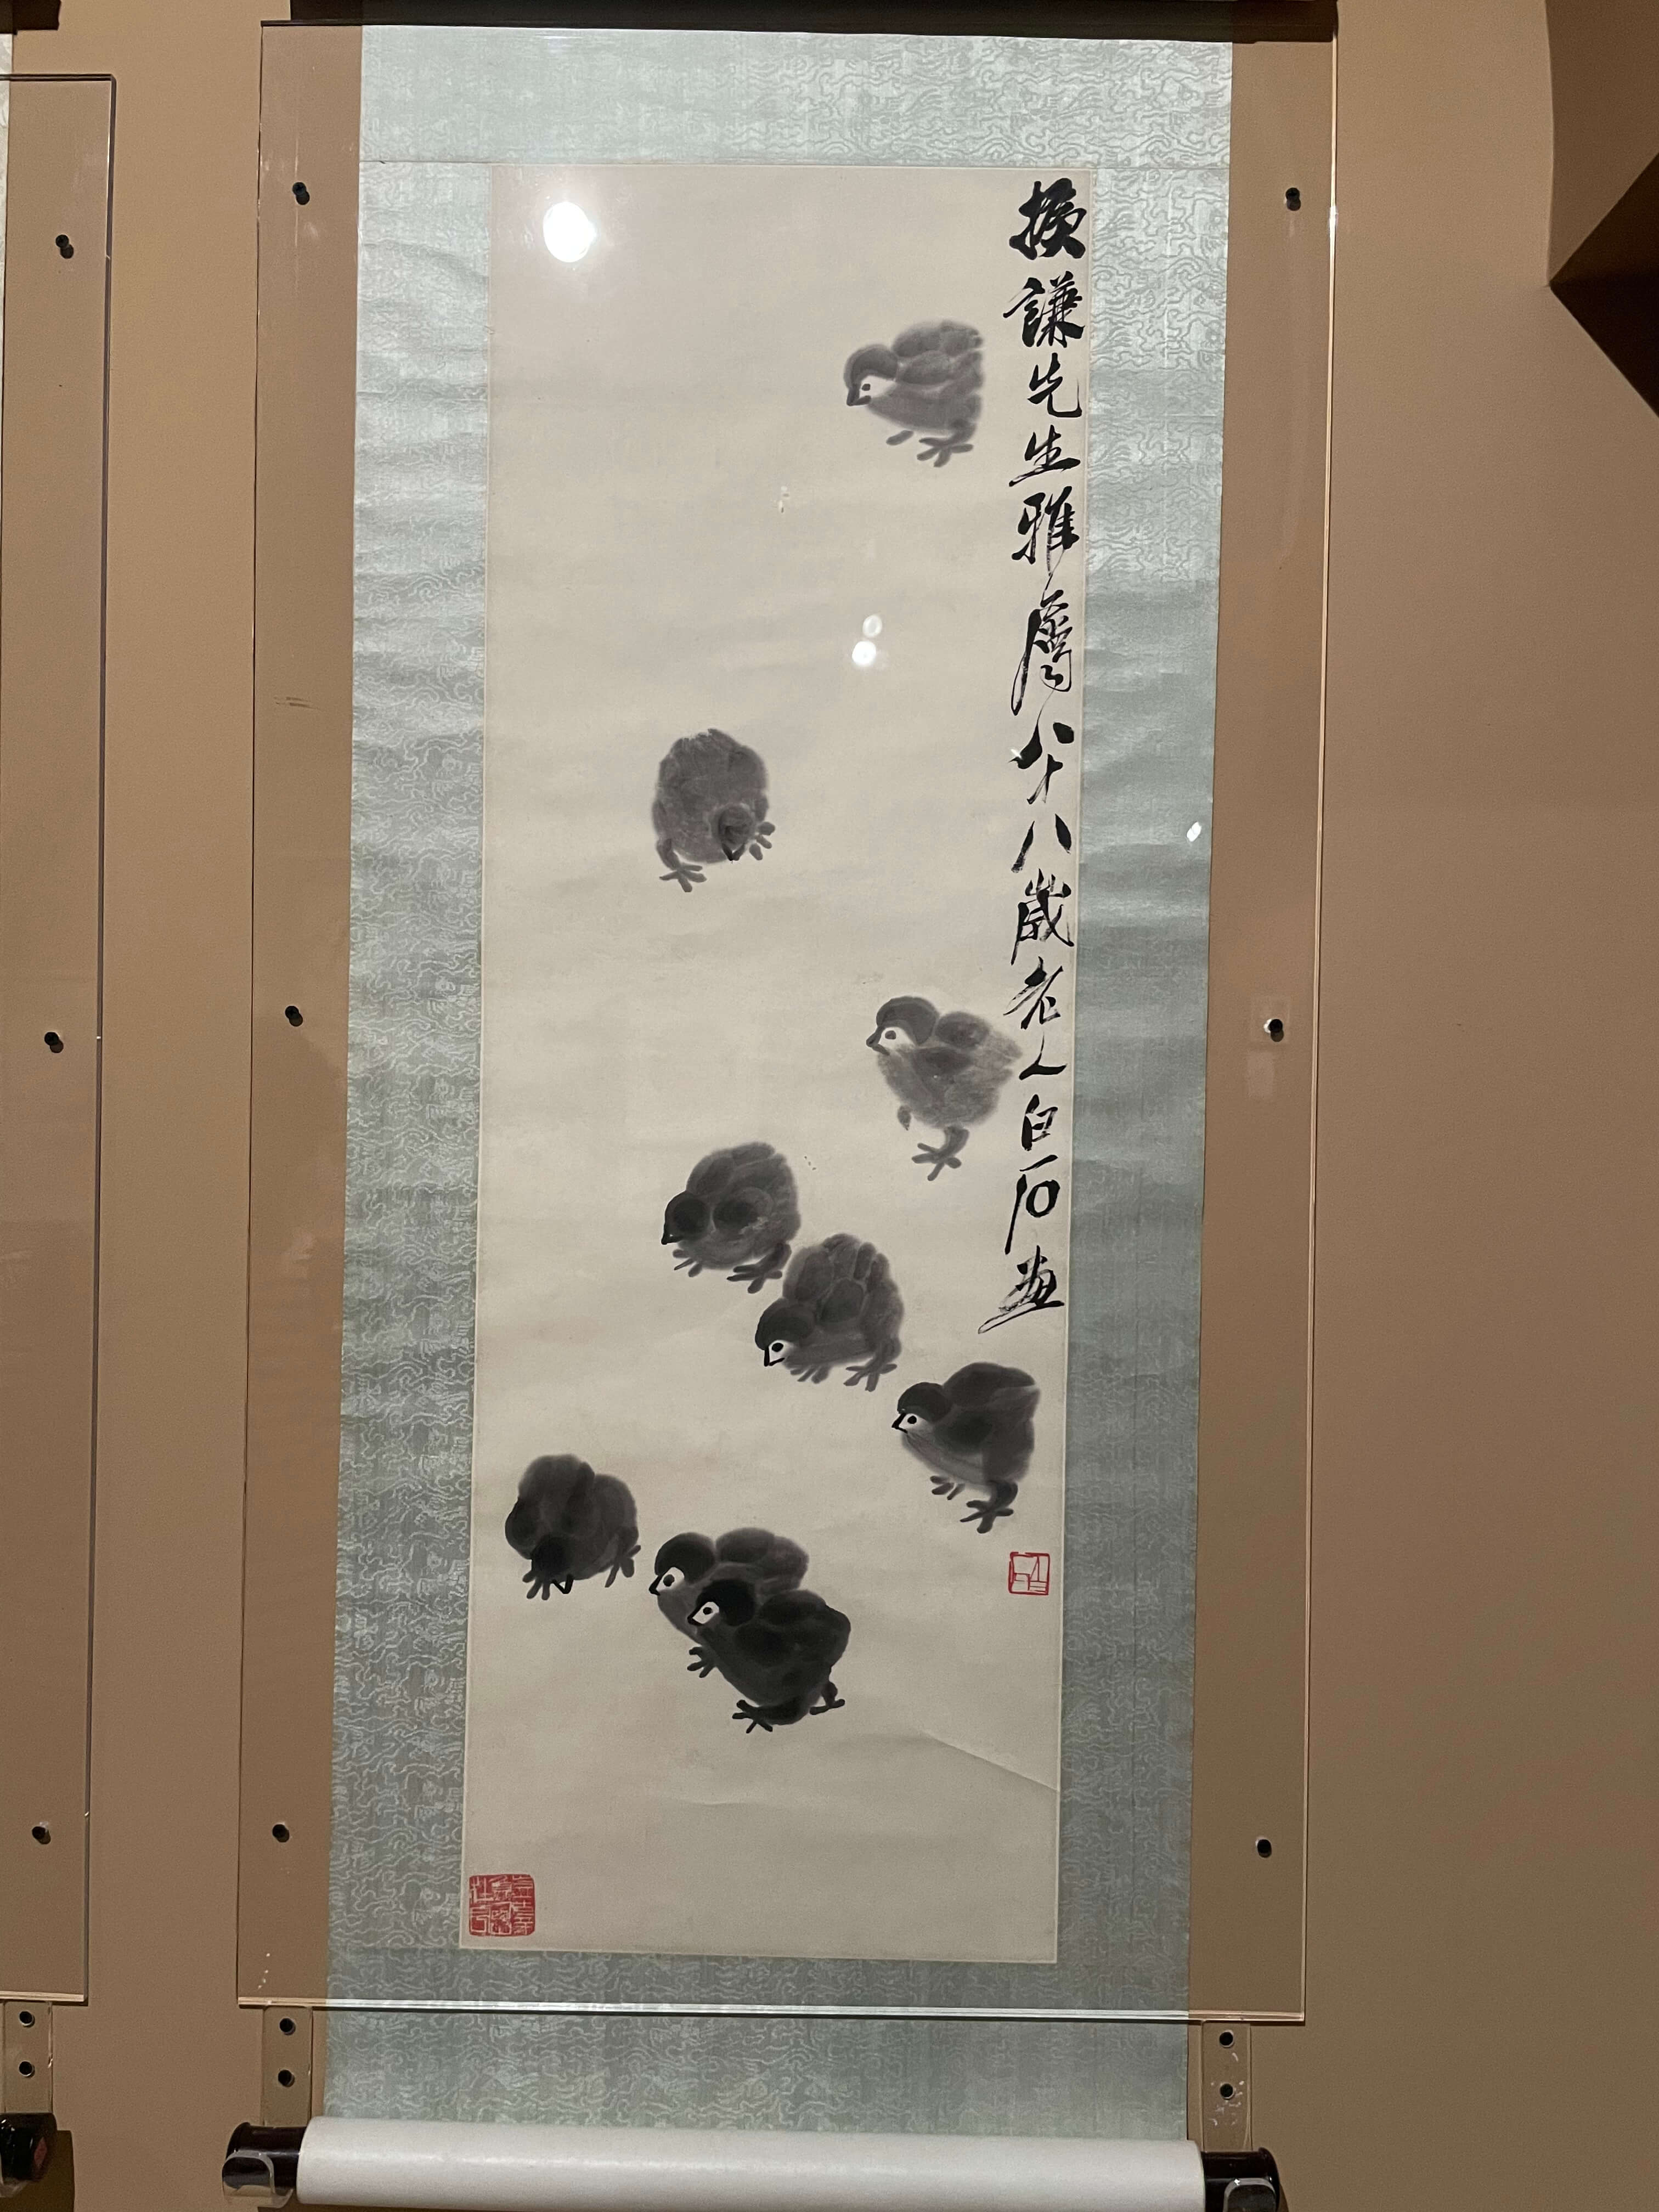 謙先生雅屬八十八歲老人白石畫